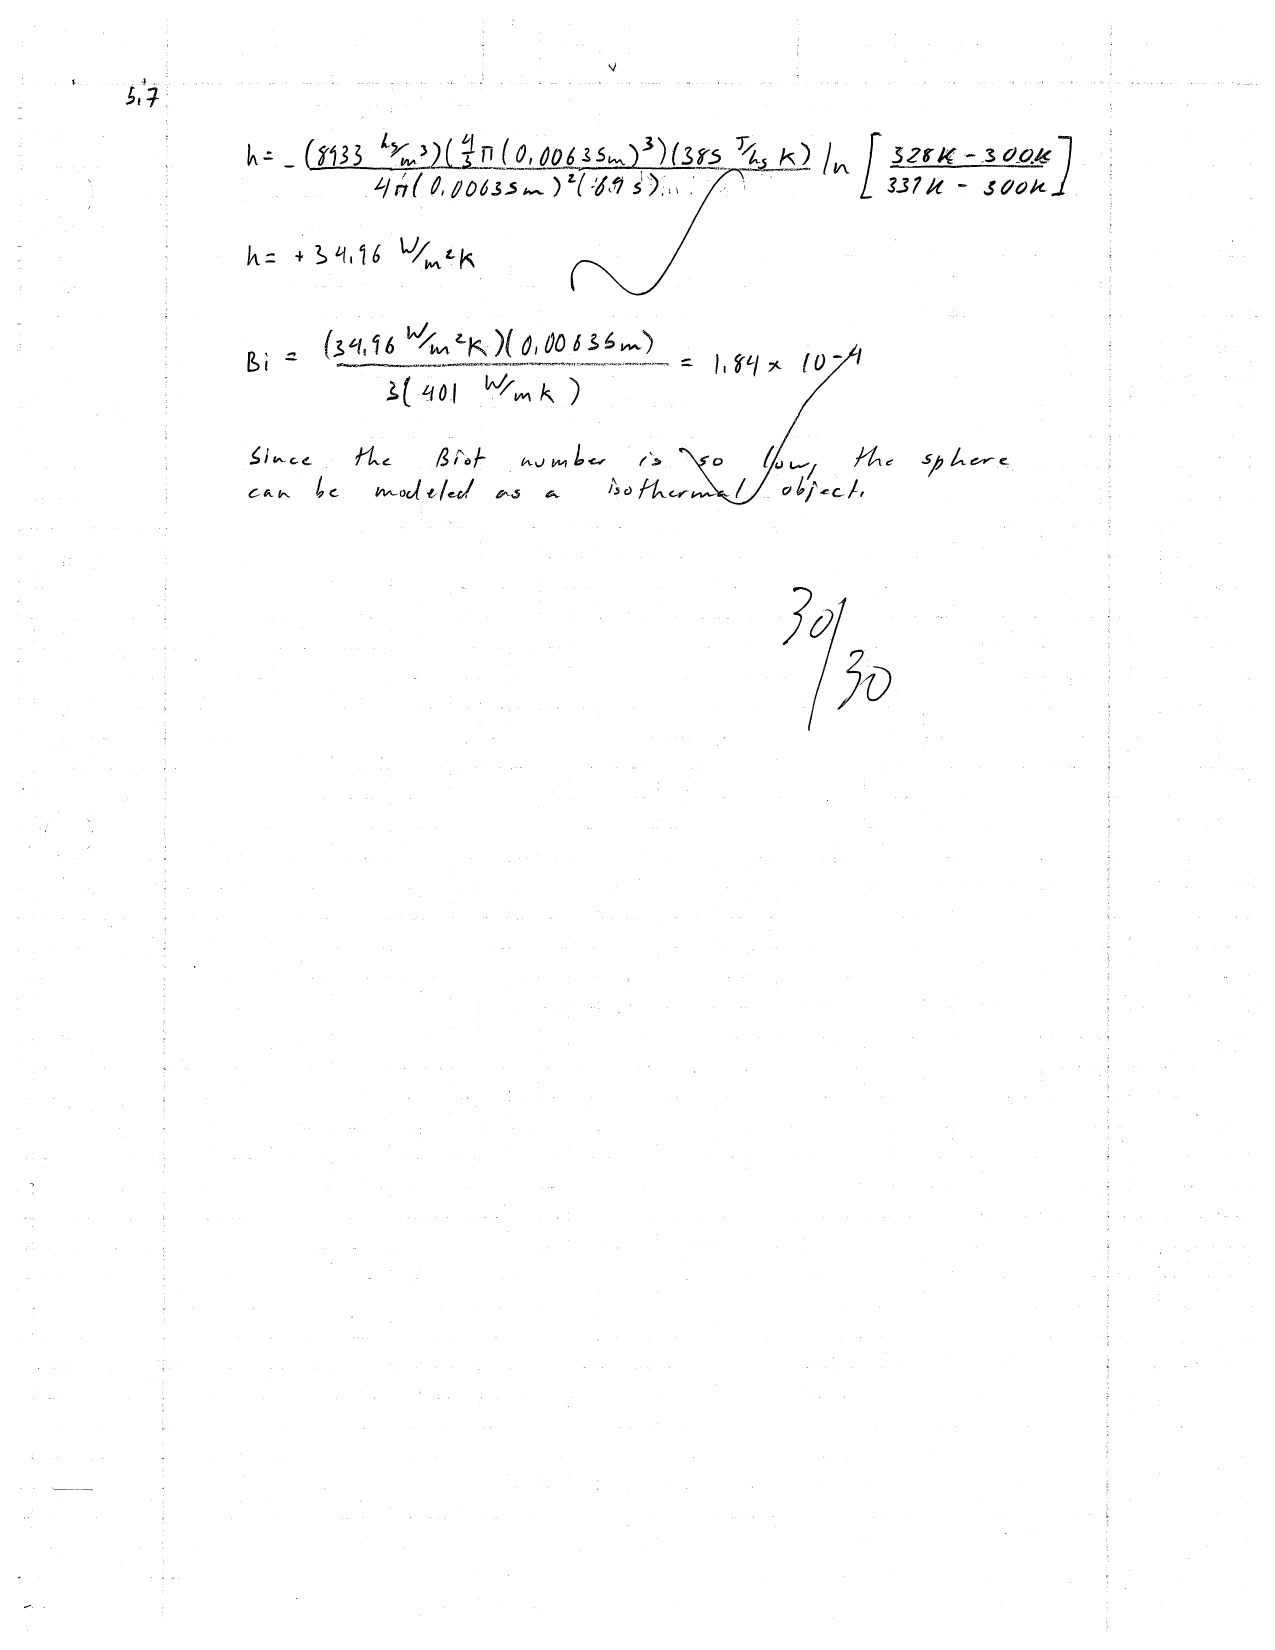 5.7
h = - (8933 kg/m³)(4/3 π(0.00635m)³)(385 J/kg K) / 4π(0.00635m)²(69 s) ln [328K - 300K / 337K - 300K]
h = +34.96 W/m²K
Bi = (34.96 W/m²K)(0.00635m) / 3(401 W/mK) = 1.84 × 10⁻⁴
Since the Biot number is so low, the sphere
can be modeled as a isothermal object.
30/30